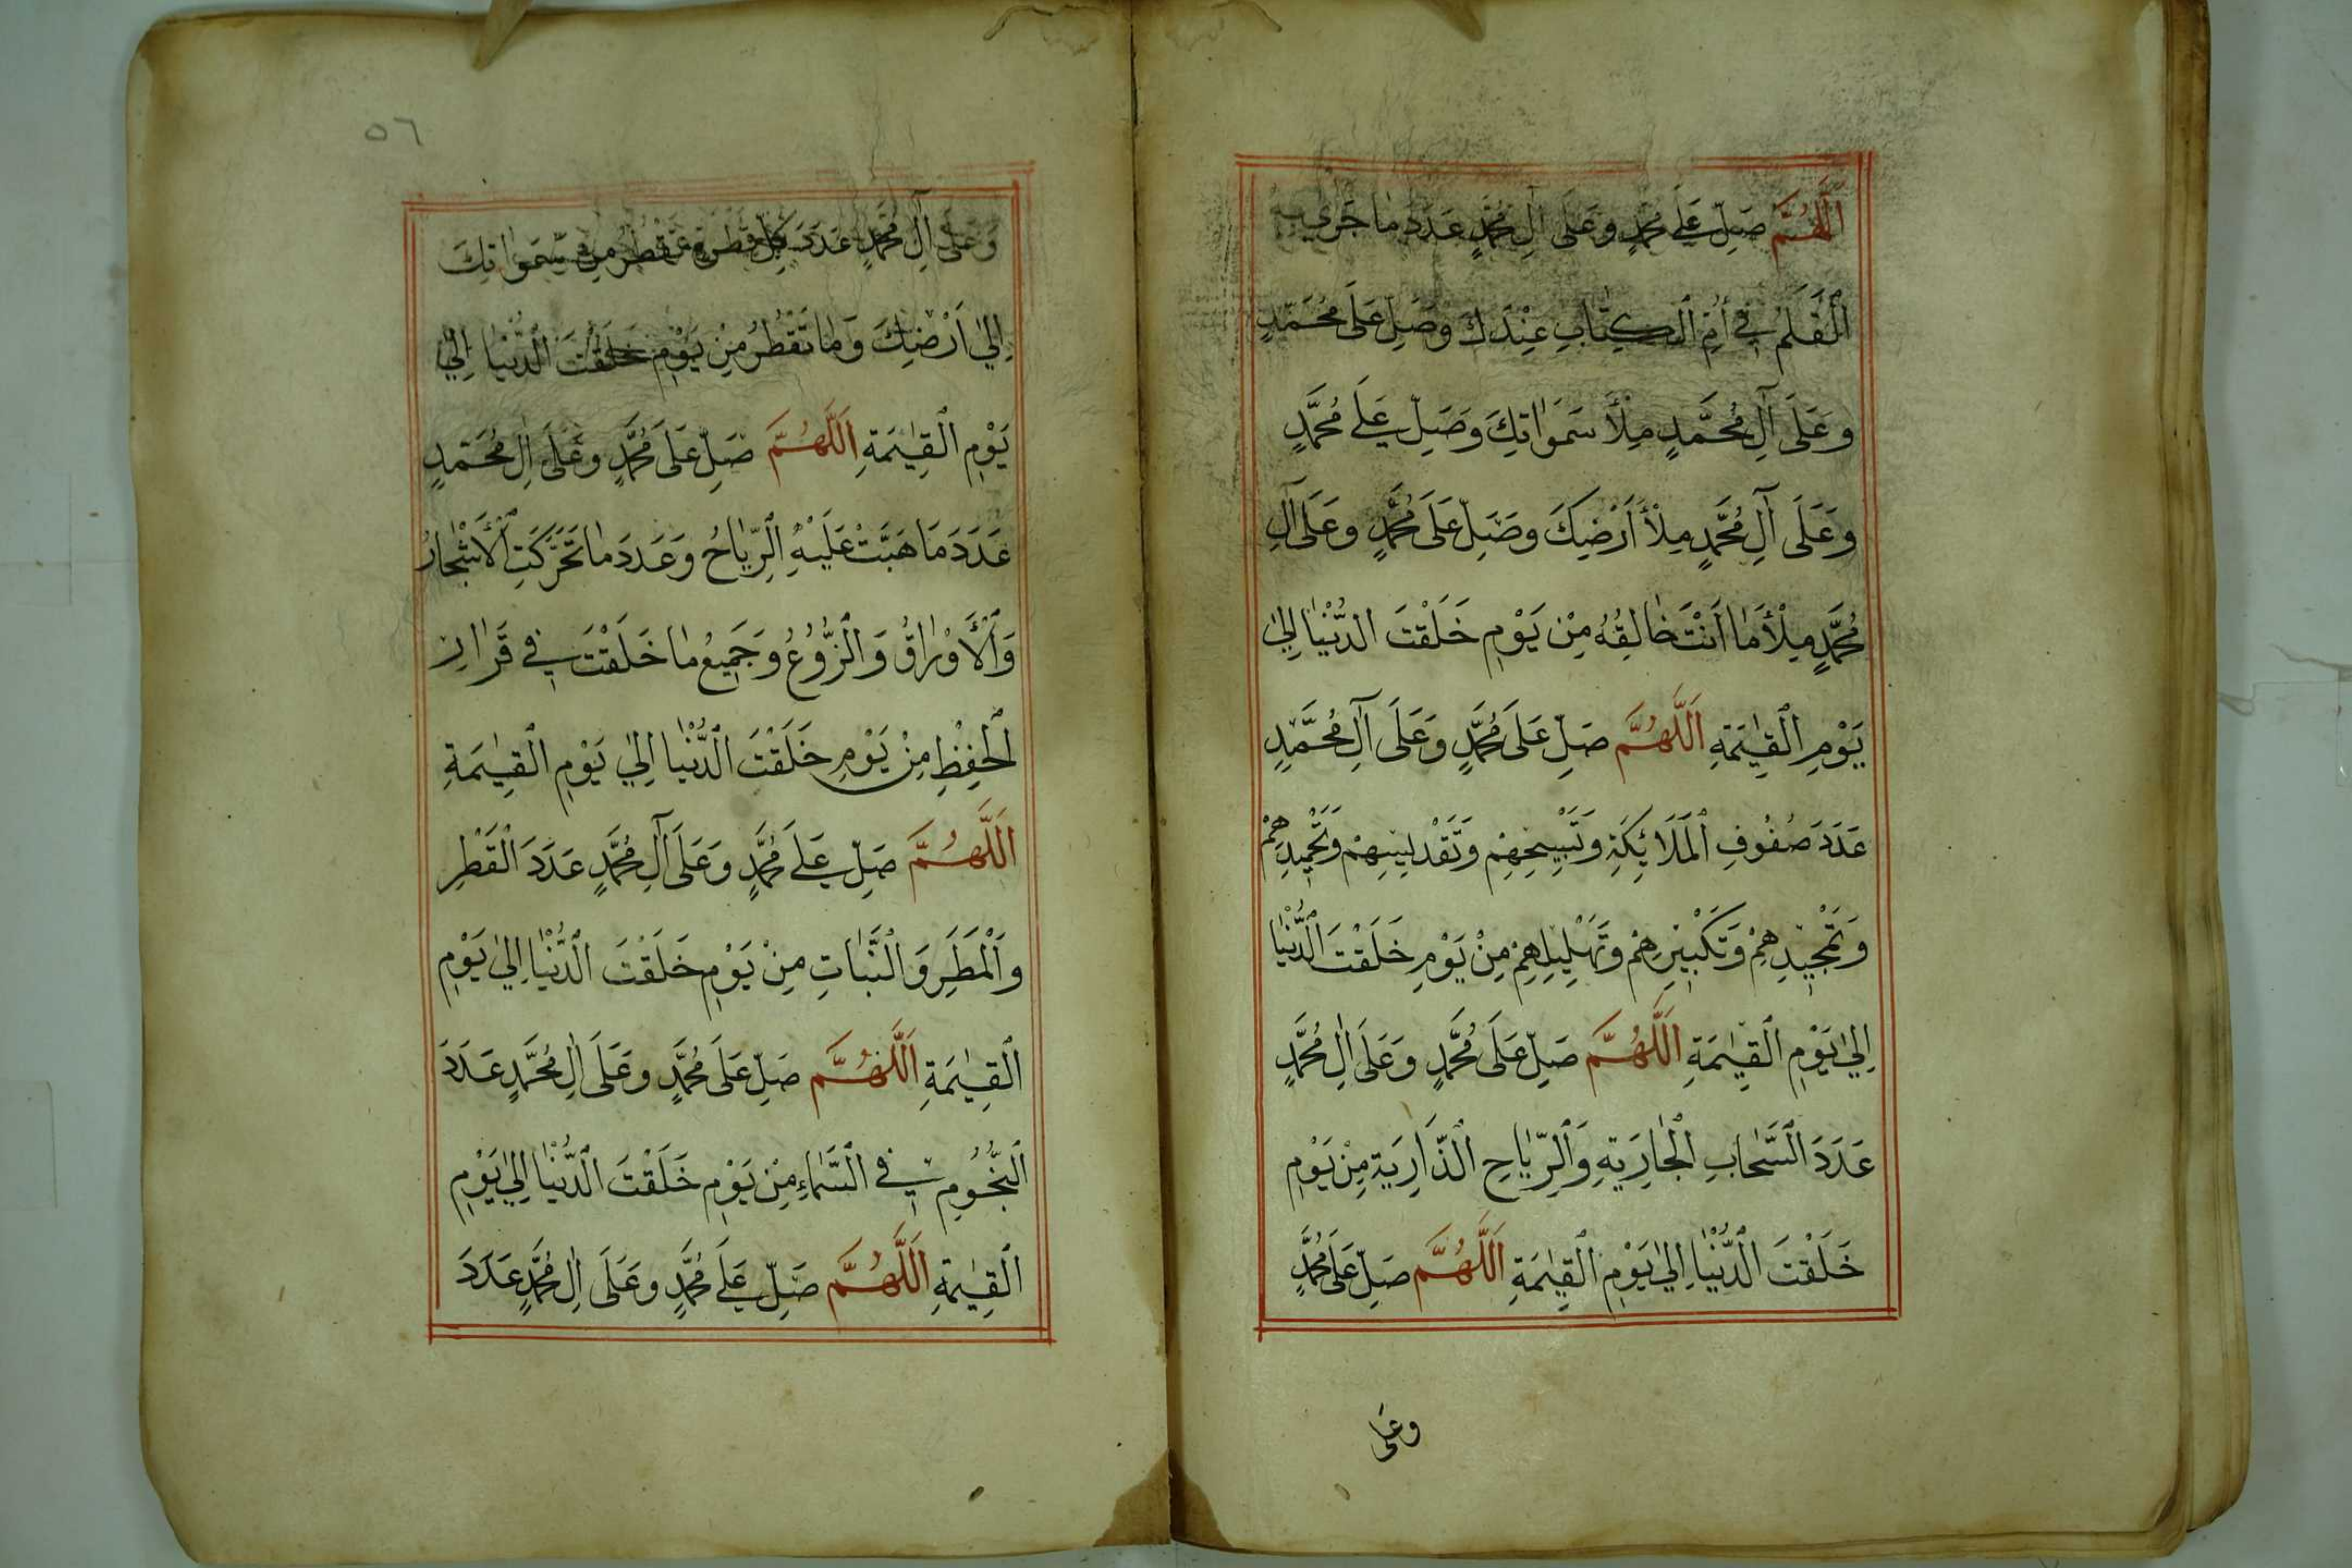 اَللّٰهُمَّ صَلِّ عَلَى مُحَمَّدٍ وَعَلَى اٰلِ مُحَمَّدٍ عَدَدَ مَا جَرٰى بِهِ
الْقَلَمُ فِي أُمِّ الْكِتَابِ عِنْدَكَ وَصَلِّ عَلَى مُحَمَّدٍ
وَعَلَى آلِ مُحَمَّدٍ مِلْأَ سَمَوَاتِكَ وَصَلِّ عَلَى مُحَمَّدٍ
وَعَلَى آلِ مُحَمَّدٍ مِلْأَ أَرْضِكَ وَصَلِّ عَلَى مُحَمَّدٍ وَعَلَى آلِ
مُحَمَّدٍ مِلْأَ مَا اَنْتَ خَالِقُهُ مِنْ يَوْمِ خَلَقْتَ الدُّنْيَا اِلٰى
يَوْمِ الْقِيٰمَةِ اَللّٰهُمَّ صَلِّ عَلَى مُحَمَّدٍ وَعَلَى آلِ مُحَمَّدٍ
عَدَدَ صُفُوفِ الْمَلَائِكَةِ وَتَسْبِيحِهِمْ وَتَقْدِيسِهِمْ وَتَحْمِيدِهِمْ
وَتَمْجِيدِهِمْ وَتَكْبِيرِهِمْ وَتَهْلِيلِهِمْ مِنْ يَوْمِ خَلَقْتَ الدُّنْيَا
اِلٰى يَوْمِ الْقِيٰمَةِ اَللّٰهُمَّ صَلِّ عَلَى مُحَمَّدٍ وَعَلَى اٰلِ مُحَمَّدٍ
عَدَدَ السَّحَابِ الْجَارِيَةِ وَالرِّيَاحِ الذَّارِيَةِ مِنْ يَوْمِ
خَلَقْتَ الدُّنْيَا اِلٰى يَوْمِ الْقِيٰمَةِ اَللّٰهُمَّ صَلِّ عَلَى مُحَمَّدٍ
وعلى
٥٦
وَعَلَى آلِ مُحَمَّدٍ عَدَدَ كُلِّ قَطْرَةٍ قَطَرَتْ مِنْ سَمَوَاتِكَ
اِلٰى اَرْضِكَ وَمَا تَقْطُرُ مِنْ يَوْمِ خَلَقْتَ الدُّنْيَا اِلٰى
يَوْمِ الْقِيٰمَةِ اَللّٰهُمَّ صَلِّ عَلَى مُحَمَّدٍ وَعَلَى اٰلِ مُحَمَّدٍ
عَدَدَ مَا هَبَّتْ عَلَيْهِ الرِّيَاحُ وَعَدَدَ مَا تَحَرَّكَتِ الْأَشْجَارُ
وَالْأَوْرَاقُ وَالزُّرُوعُ وَجَمِيعُ مَا خَلَقْتَ فِي قَرَارِ
الْحِفْظِ مِنْ يَوْمِ خَلَقْتَ الدُّنْيَا اِلٰى يَوْمِ الْقِيٰمَةِ
اَللّٰهُمَّ صَلِّ عَلَى مُحَمَّدٍ وَعَلَى آلِ مُحَمَّدٍ عَدَدَ الْقَطْرِ
وَالْمَطَرِ وَالنَّبَاتِ مِنْ يَوْمِ خَلَقْتَ الدُّنْيَا اِلٰى يَوْمِ
الْقِيٰمَةِ اَللّٰهُمَّ صَلِّ عَلَى مُحَمَّدٍ وَعَلَى اٰلِ مُحَمَّدٍ عَدَدَ
النُّجُومِ فِي السَّمَاءِ مِنْ يَوْمِ خَلَقْتَ الدُّنْيَا اِلٰى يَوْمِ
الْقِيٰمَةِ اَللّٰهُمَّ صَلِّ عَلَى مُحَمَّدٍ وَعَلَى اٰلِ مُحَمَّدٍ عَدَدَ